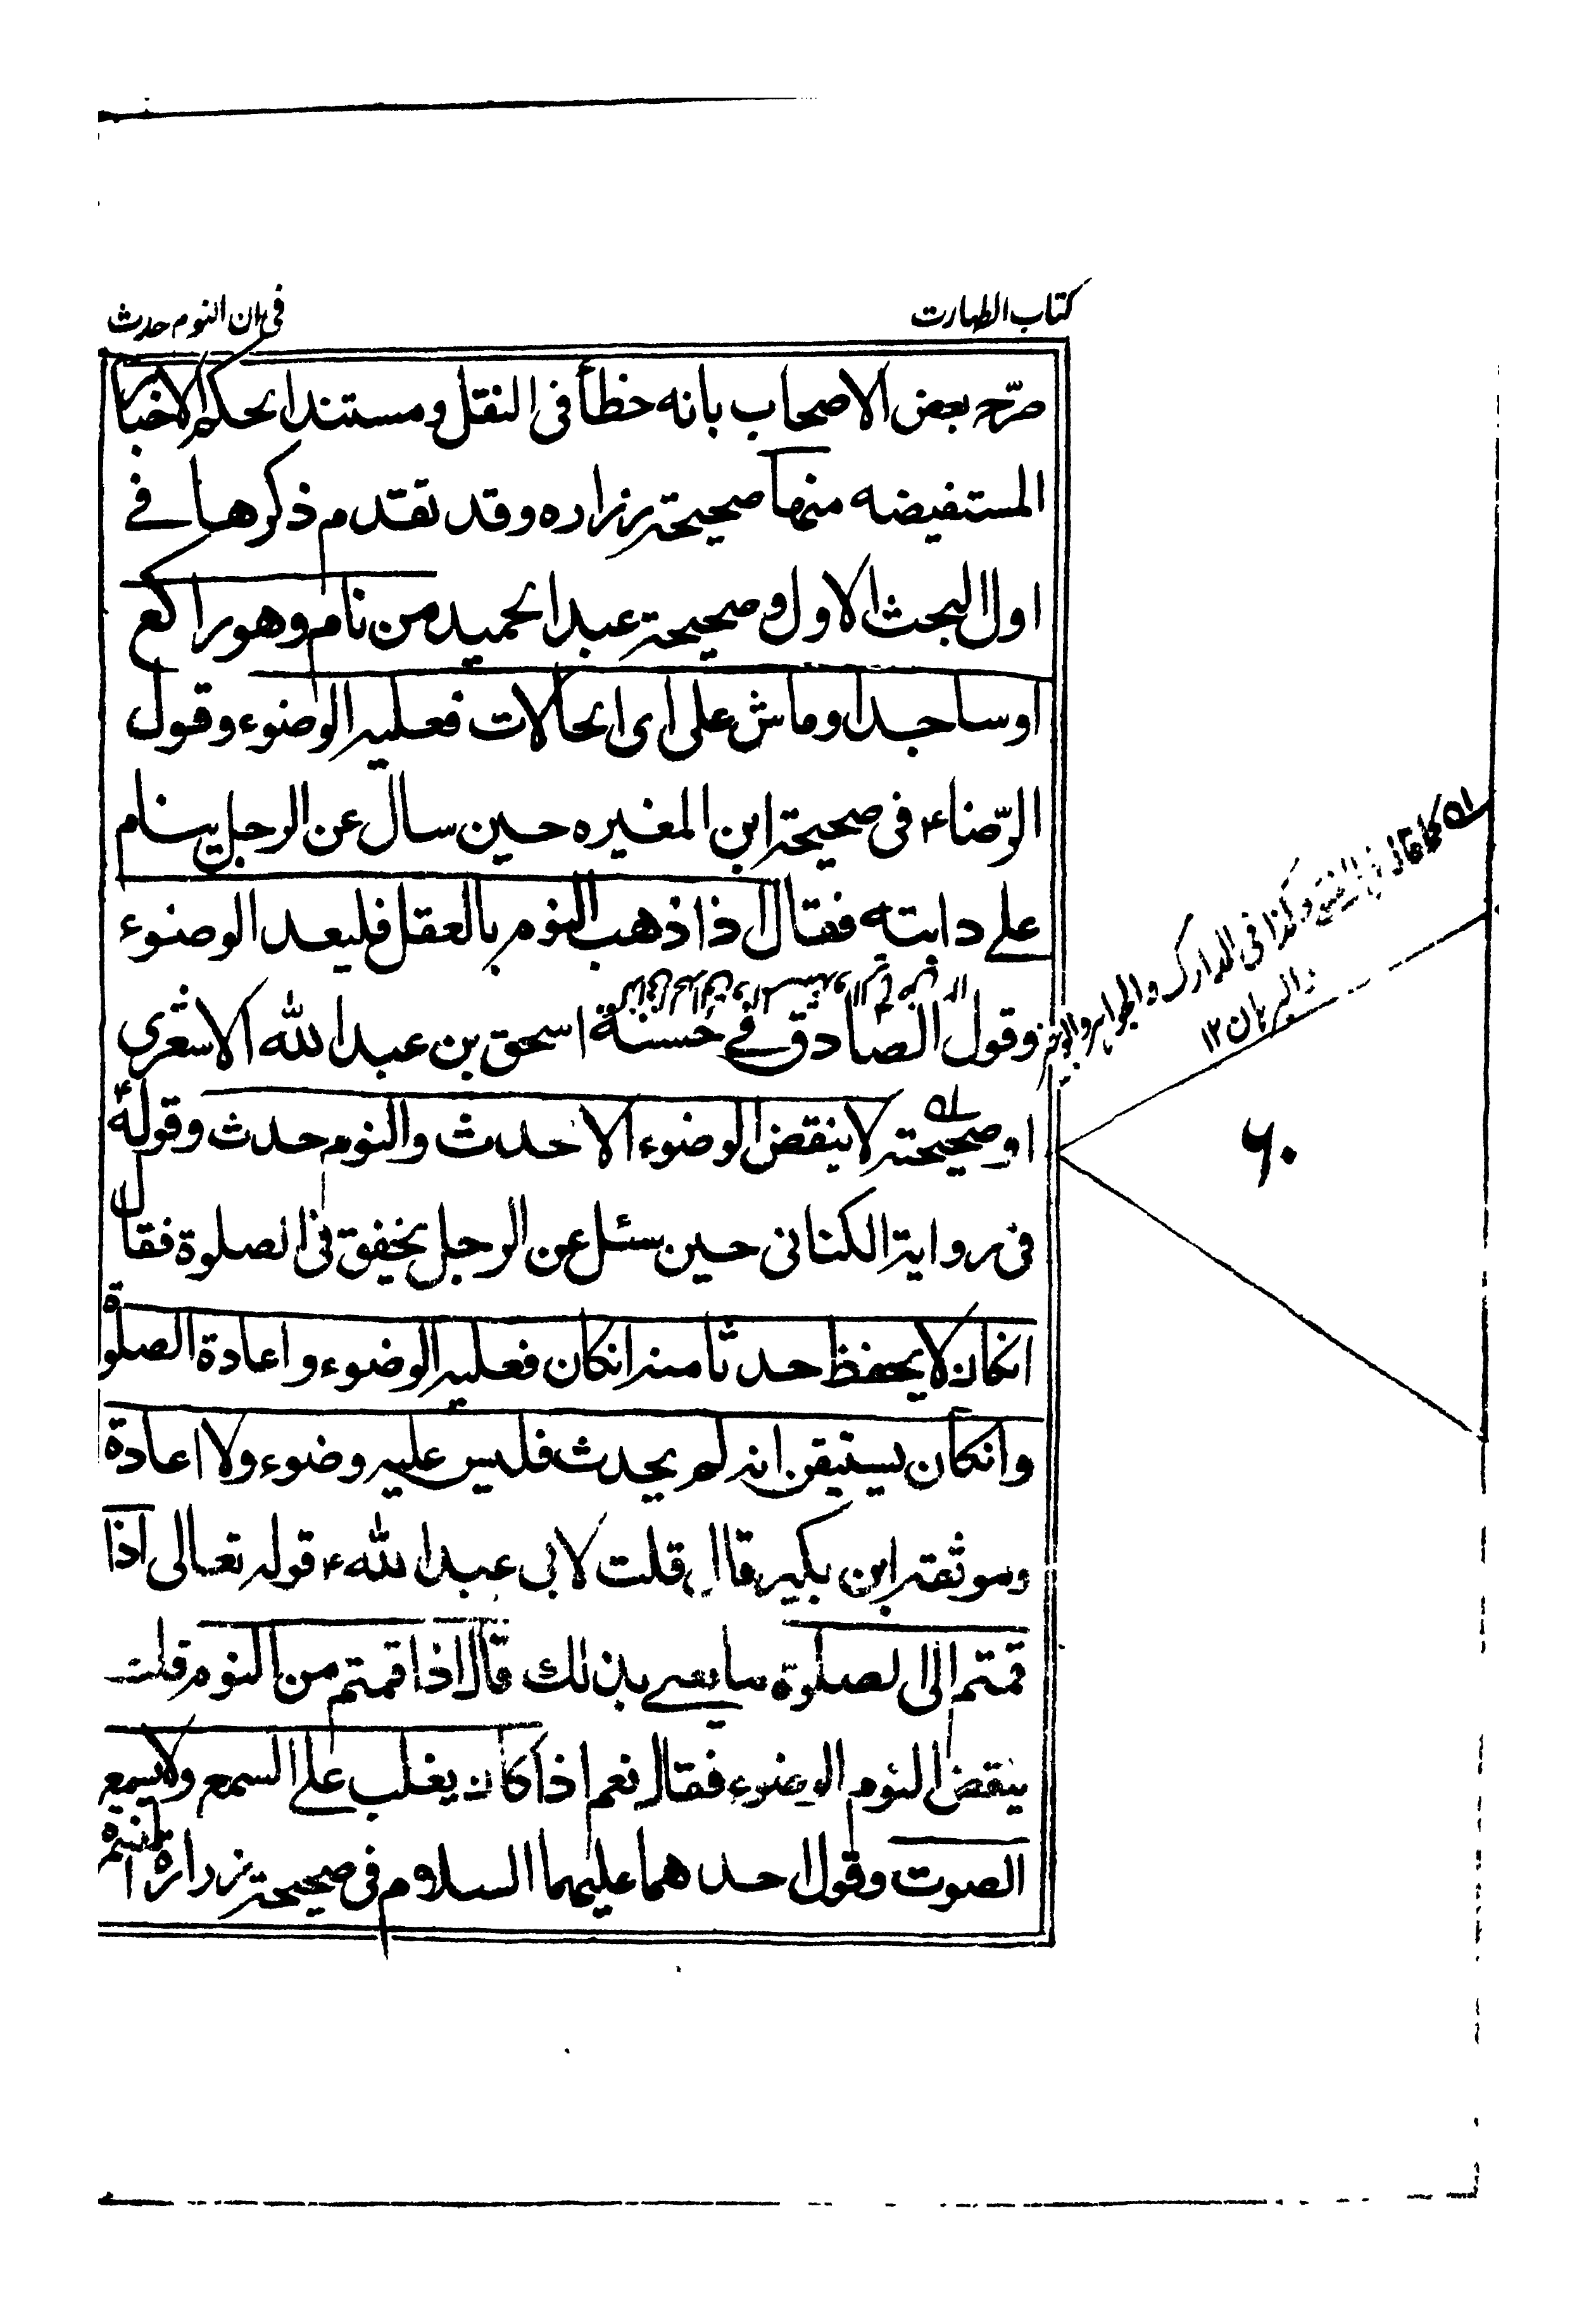 كتاب الطهارت
فی ان النوم حدث
صرّح بعض الاصحاب بانه خطأ فی النقل ومستند الحكم الاخبار
المستفيضه منها صحيحة زراره وقد تقدم ذكرها فے
اول البحث الاول وصحيحة عبد الحميد من نام وهو راكع
او ساجد او ماش علی ای الحالات فعليه الوضوء وقول
الرّضاء؏ فی صحيحة ابن المغيره حين سال عن الرجل ينام
علے دابته فقال اذا ذهب النوم بالعقل فليعد الوضوء
وقول الصادق فے حسنة اسحق بن عبد الله الاشعری
او صحيحته لا ينقض الوضوء الا حدث والنوم حدث وقوله؏
فی رواية الكنانی حين سئل عن الرجل يخفق فی الصلوة فقال
انكان لا يحفظ حدثا منه انكان فعليه الوضوء واعادة الصلوة
وانكان يستيقن انه لم يحدث فليس عليه وضوء ولا اعادة
وموثقة ابن بكير قال قلت لابی عبد الله؏ قوله تعالی اذا
قمتم الی الصلوة ما يعنے بذلك قال اذا قمتم من النوم قلت
ينقض النوم الوضوء فقال نعم اذا كان يغلب علے السمع ولا يسمع
الصوت وقول احدهما عليهما السلام فی صحيحة زرارة
وكذا فی المدارك والجواهر
والبرهان ١٢
٦٠